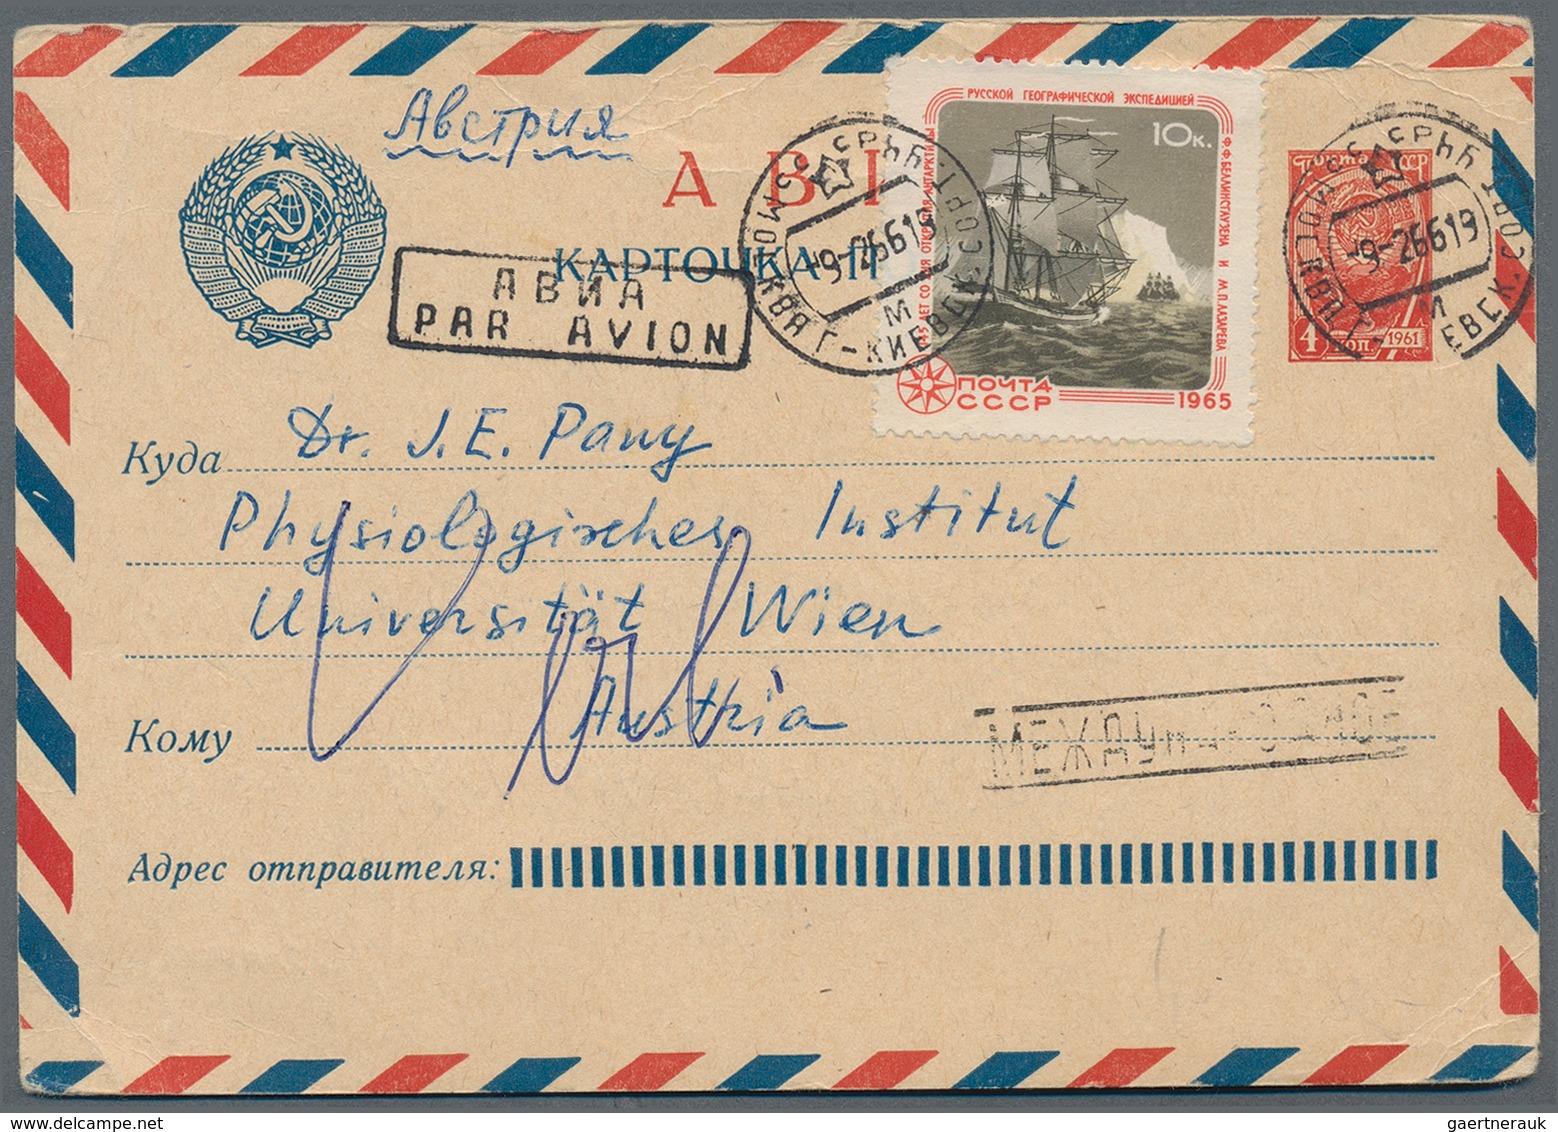 Австрия
АВІ
КАРТОЧКА П
АВИА
PAR AVION
РУССКОЙ ГЕОГРАФИЧЕСКОЙ ЭКСПЕДИЦИЕЙ
Ф.Ф.БЕЛЛИНСГАУЗЕНА И М.П.ЛАЗАРЕВА
145 ЛЕТ СО ДНЯ ОТКРЫТИЯ АНТАРКТИДЫ
10к.
ПОЧТА
СССР
1965
МОСКВА Г-КИЕВСК.СОРТ.
-9-26619
М
ПОЧТА СССР
-9-26619
М
4 КОП 1961
Куда Dr. J. E. Pany
Physiologisches Institut
Universität Wien
Austria
Кому
МЕЖДУНАРОДНОЕ
Адрес отправителя:
gaertnerauk